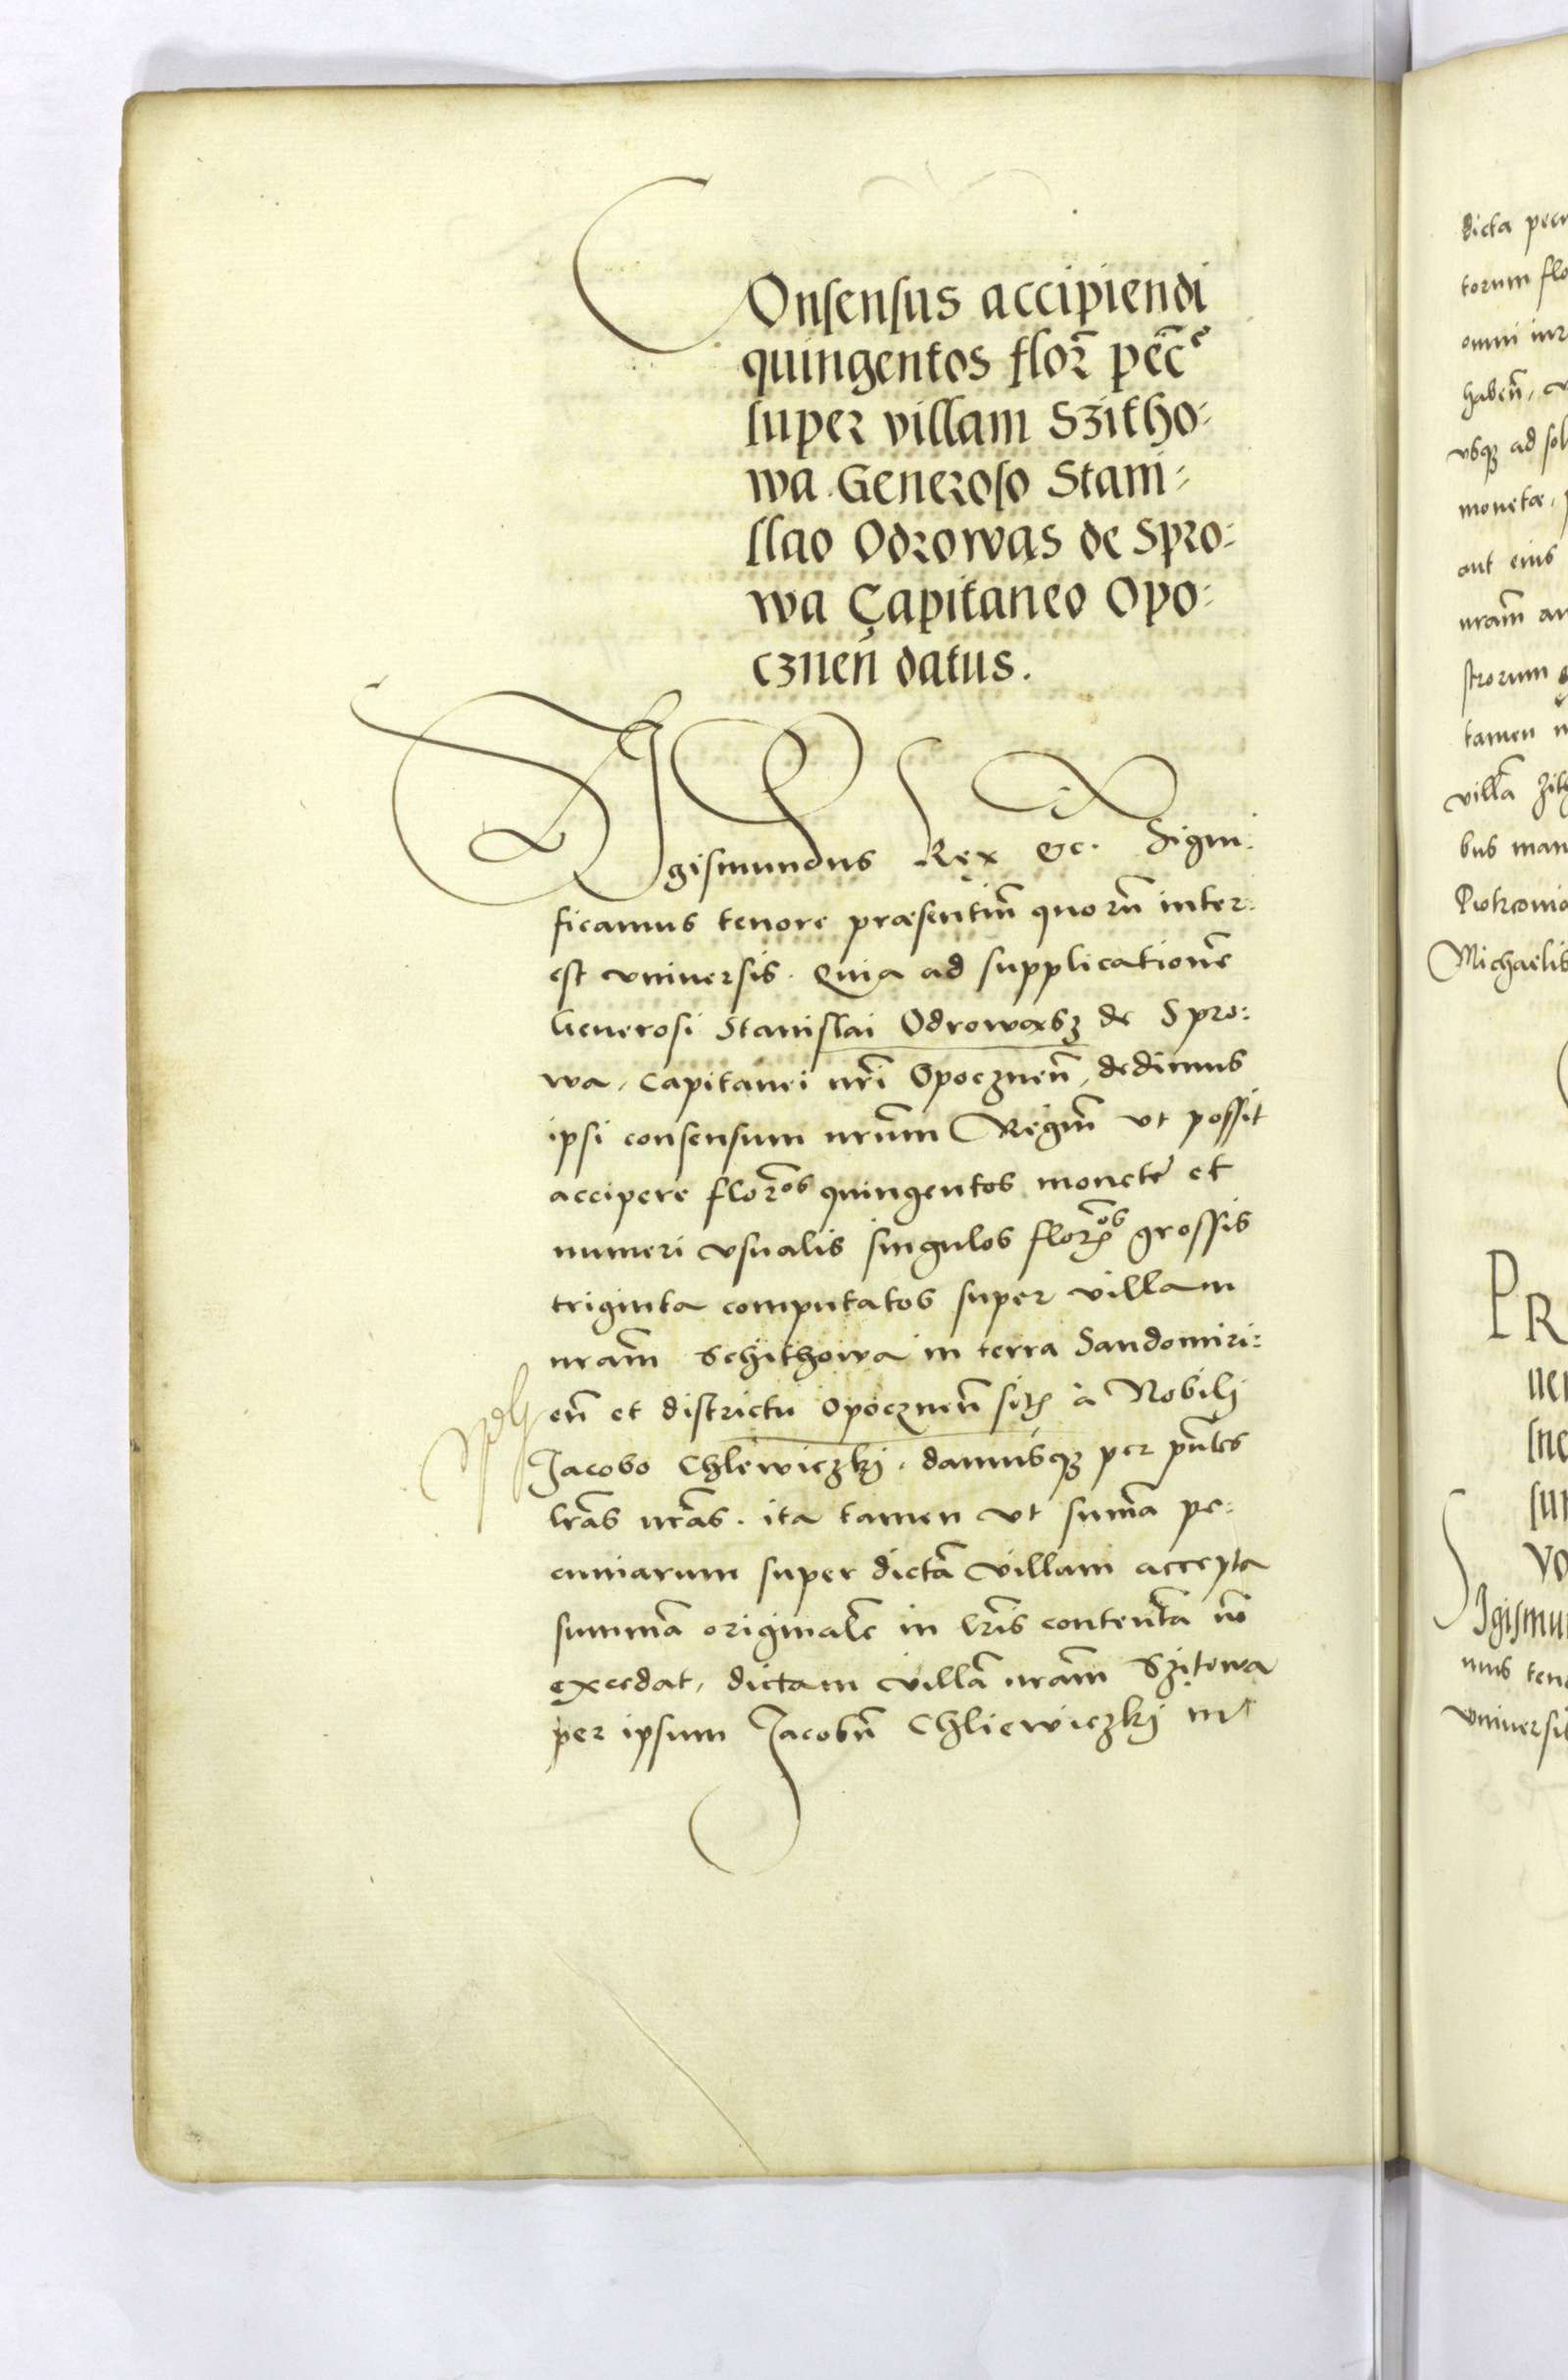 Consensus accipiendi
quingentos flor̃ pec̃e
super villam Szitho:
wa Generoso Stani:
slao Odrowąs de Spro:
wa Capitaneo Opo:
cznen̄ datus.
Sigismundus Rex &c. Signi:
ficamus tenore præsentiũ quorũ inter:
est vniuersis. Quia ad supplicationẽ
Generosi Stanislai Odrowąsz de Spro:
wa, Capitanei nr̃i Opocznen̄, dedimus
ipsi consensum nrũm Regiũm vt possit
accipere flor̃os quingentos monetę et
numeri vsualis singulos flor̃os grossis
triginta computatos super villam
nrãm Schithowa in terra Sandomiri:
en̄ et districtu Opocznen̄ sit̃ à Nobili
Jacobo Chlewiczkj. damusqȝ per pn̄tes
lrãs nrãs. ita tamen vt sum̄a pe:
cuniarum super dictã villam accepta
summã originalẽ in lr̃is contentã nõ
excedat, dictam villã nrãm Szitowa
per ipsum Jacobũ Chliewiczkj in
dicta
torum
omni
haben̄,
vsqȝ ad
monetæ,
aut eius
nrãm
strorum
tamen
villã
bus
Michaelis
PR
Sigismu
mus
vniuersi